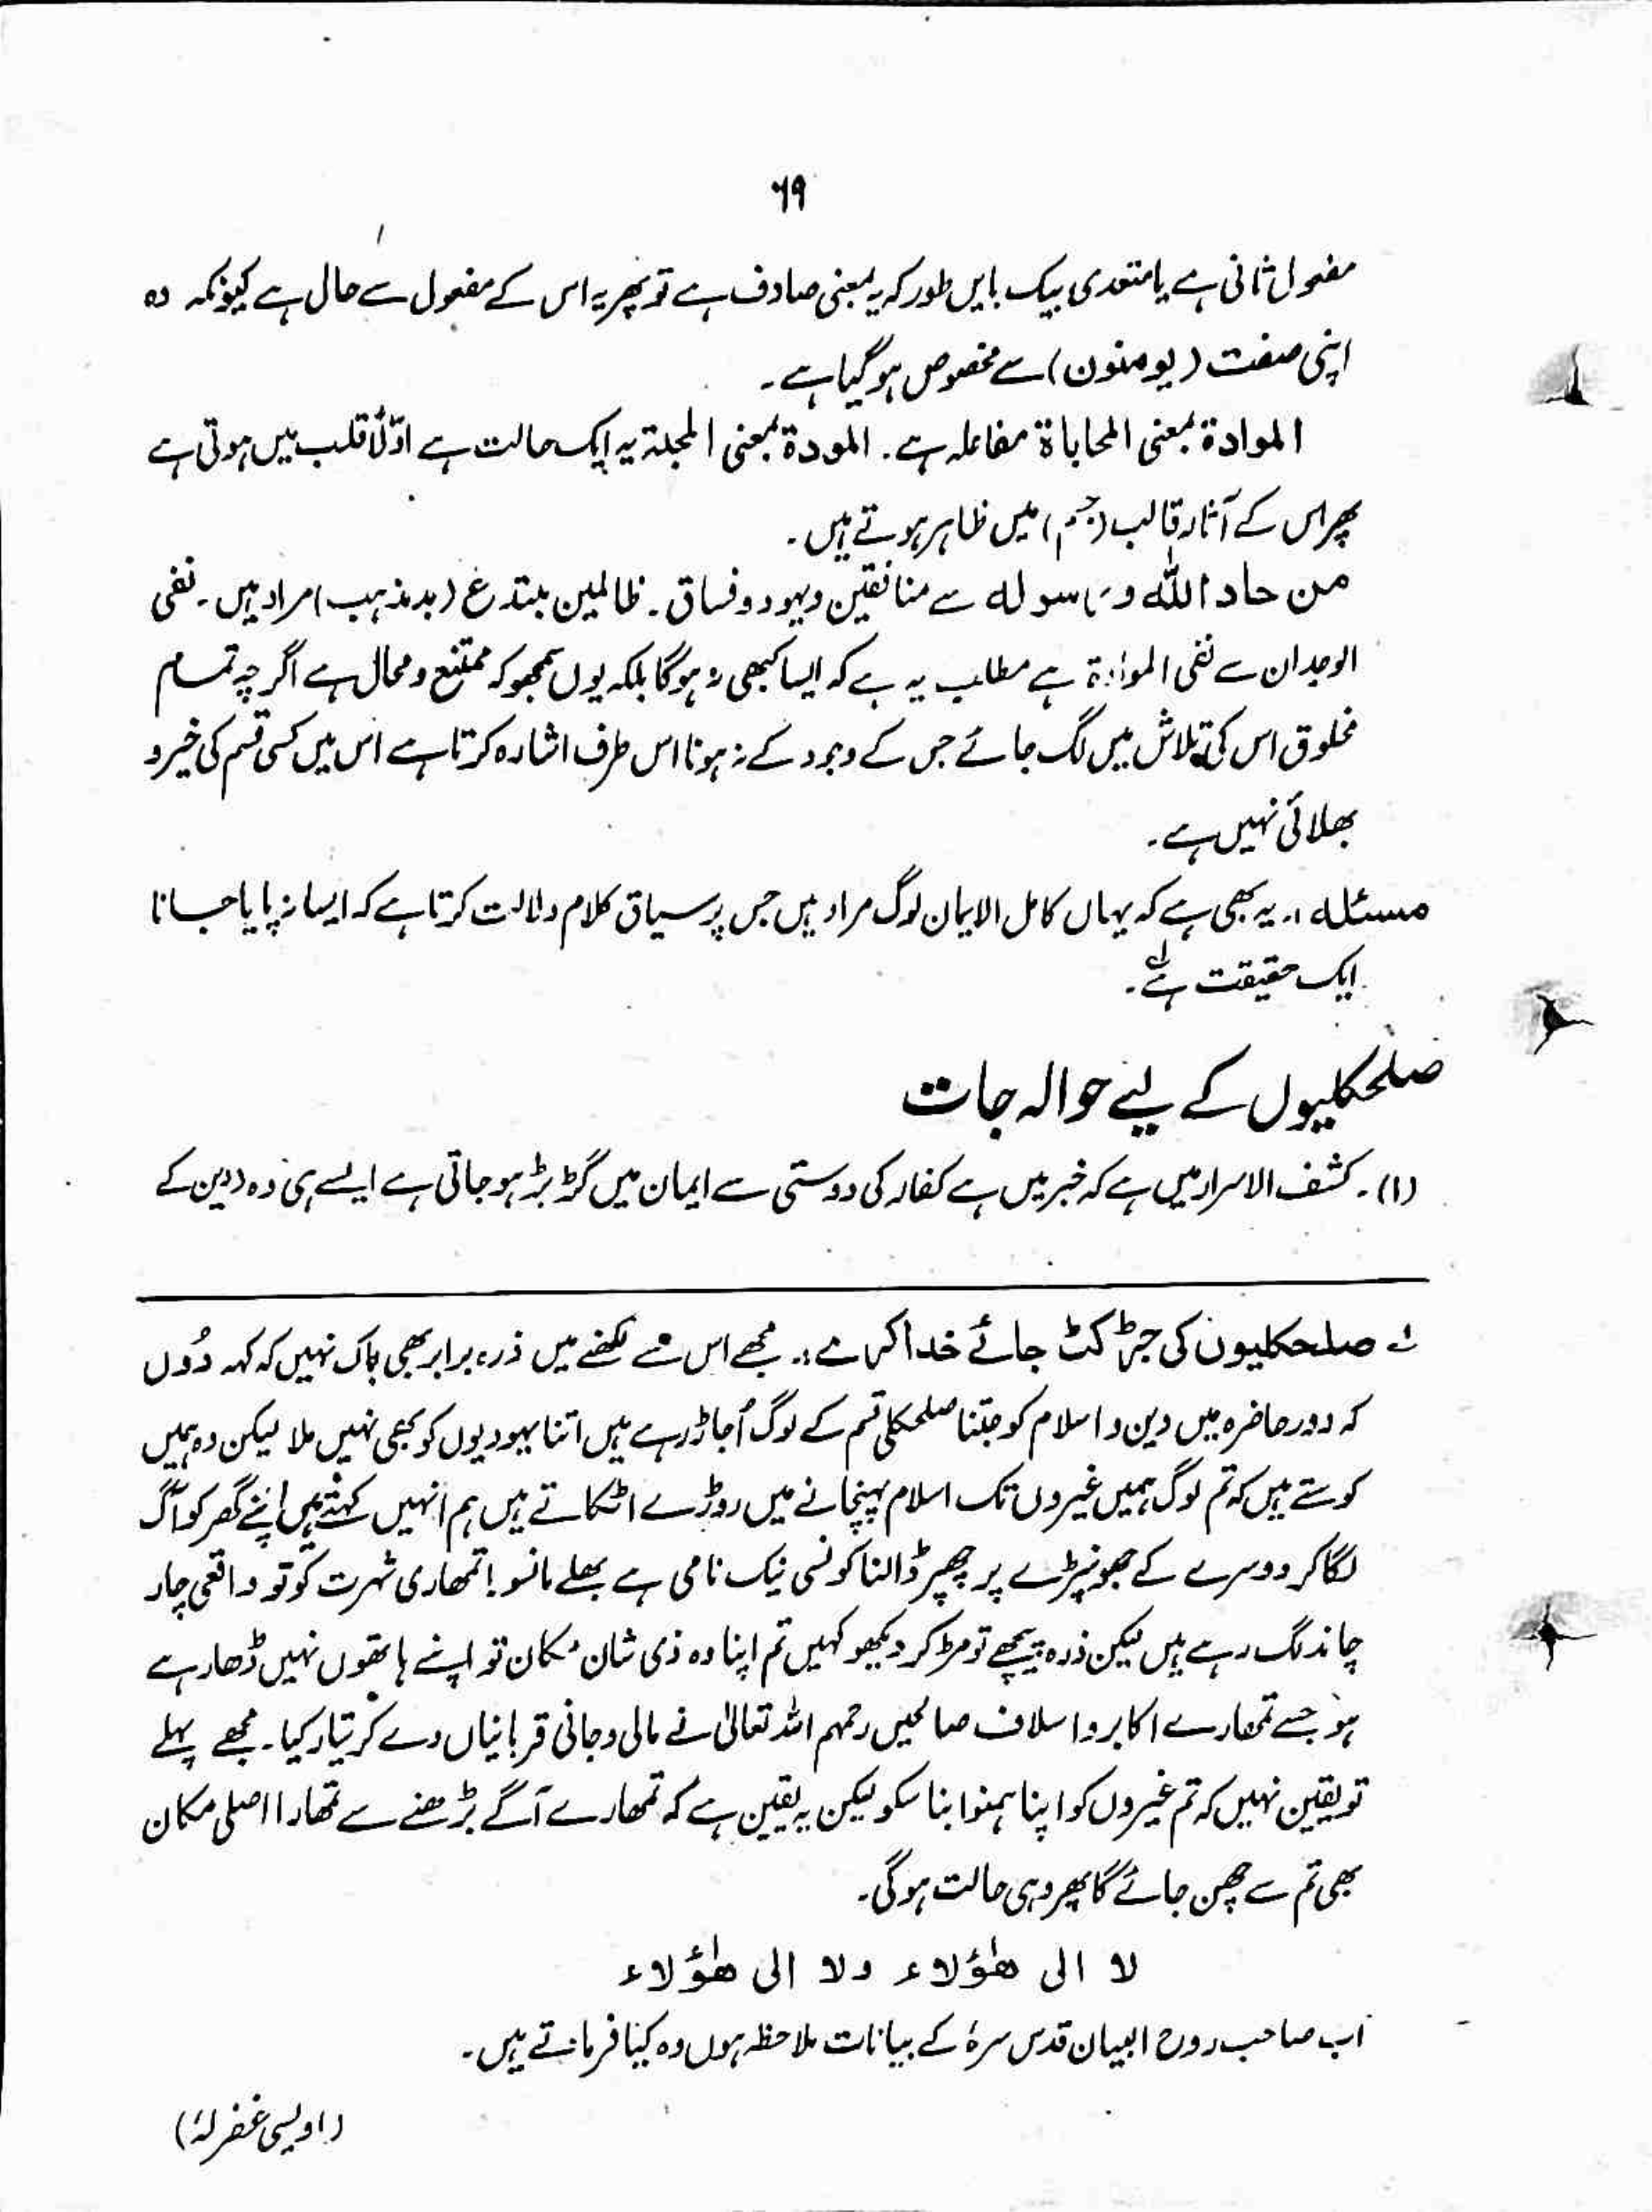 ۶۹
مفعول ثانی ہے یا متعدی بیک بایں طور کہ یہ بمعنی صادف ہے تو پھر یہ اس کے مفعول سے حال ہے کیونکہ وہ
اپنی صفت (یومنون) سے مخصوص ہو گیا ہے۔
الموادۃ بمعنی المحاباۃ مفاعلہ ہے۔ المودۃ بمعنی المحبۃ یہ ایک حالت ہے اوّلاً قلب میں ہوتی ہے
پھر اس کے آثار قالب (جسم) میں ظاہر ہوتے ہیں۔
من حاد اللّٰہ و رسولہ سے منافقین و یہود و فساق۔ ظالمین مبتدع (بدمذہب) مراد ہیں۔ نفی
الوجدان سے نفی الموادۃ ہے مطلب یہ ہے کہ ایسا کبھی نہ ہوگا بلکہ یوں سمجھو کہ ممتنع و محال ہے اگرچہ تمام
مخلوق اس کی تلاش میں لگ جائے جس کے وجود کے نہ ہونا اس طرف اشارہ کرتا ہے اس میں کسی قسم کی خیر و
بھلائی نہیں ہے۔
مسئلہ :۔ یہ بھی ہے کہ یہاں کامل الایمان لوگ مراد ہیں جس پر سیاق کلام دلالت کرتا ہے کہ ایسا نہ پایا جانا
ایک حقیقت ہے۔
صلحکلیوں کے لیے حوالہ جات
(۱)۔ کشف الاسرار میں ہے کہ خبر میں ہے کفار کی دوستی سے ایمان میں گڑبڑ ہو جاتی ہے ایسے ہی وہ (دین کے
لے صلحکلیوں کی جڑ کٹ جائے خدا کرے :۔ مجھے اس کے لکھنے میں ذرہ برابر بھی باک نہیں کہ کہہ دُوں
کہ دور حاضرہ میں دین و اسلام کو جتنا صلحکلی قسم کے لوگ اُجاڑ رہے ہیں اتنا یہودیوں کو بھی نہیں ملا لیکن وہ ہمیں
کوستے ہیں کہ تم لوگ ہمیں غیروں تک اسلام پہنچانے میں روڑے اٹکاتے ہیں ہم انہیں کہتے ہیں اپنے گھر کو آگ
لگا کر دوسرے کے جھونپڑے پر چھپر ڈالنا کونسی نیک نامی ہے بھلے مانسو! تمھاری شہرت کو تو واقعی چار
چاند لگ رہے ہیں لیکن ذرہ پیچھے تو مڑ کر دیکھو کہیں تم اپنا وہ ذی شان مکان تو اپنے ہاتھوں نہیں ڈھا رہے
ہو جسے تمھارے اکابر و اسلاف صالحین رحمہم اللہ تعالیٰ نے مالی و جانی قربانیاں دے کر تیار کیا۔ مجھے پہلے
تو یقین نہیں کہ تم غیروں کو اپنا ہمنوا بنا سکو لیکن یہ یقین ہے کہ تمھارے آگے بڑھنے سے تمھارا اصلی مکان
بھی تم سے چھن جائے گا پھر وہی حالت ہوگی۔
لا الی ھٰؤلاء ولا الی ھٰؤلاء
اب صاحب روح البیان قدس سرہٗ کے بیانات ملاحظہ ہوں وہ کیا فرماتے ہیں۔
(اویسی غفرلہٗ)